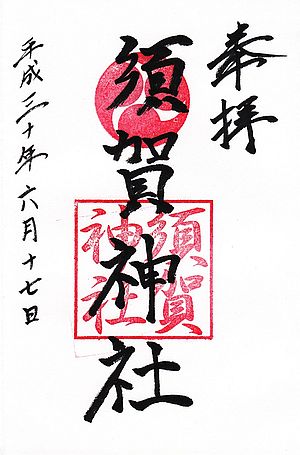 奉拝
須賀神社
須賀
神社
平成三十年六月十七日